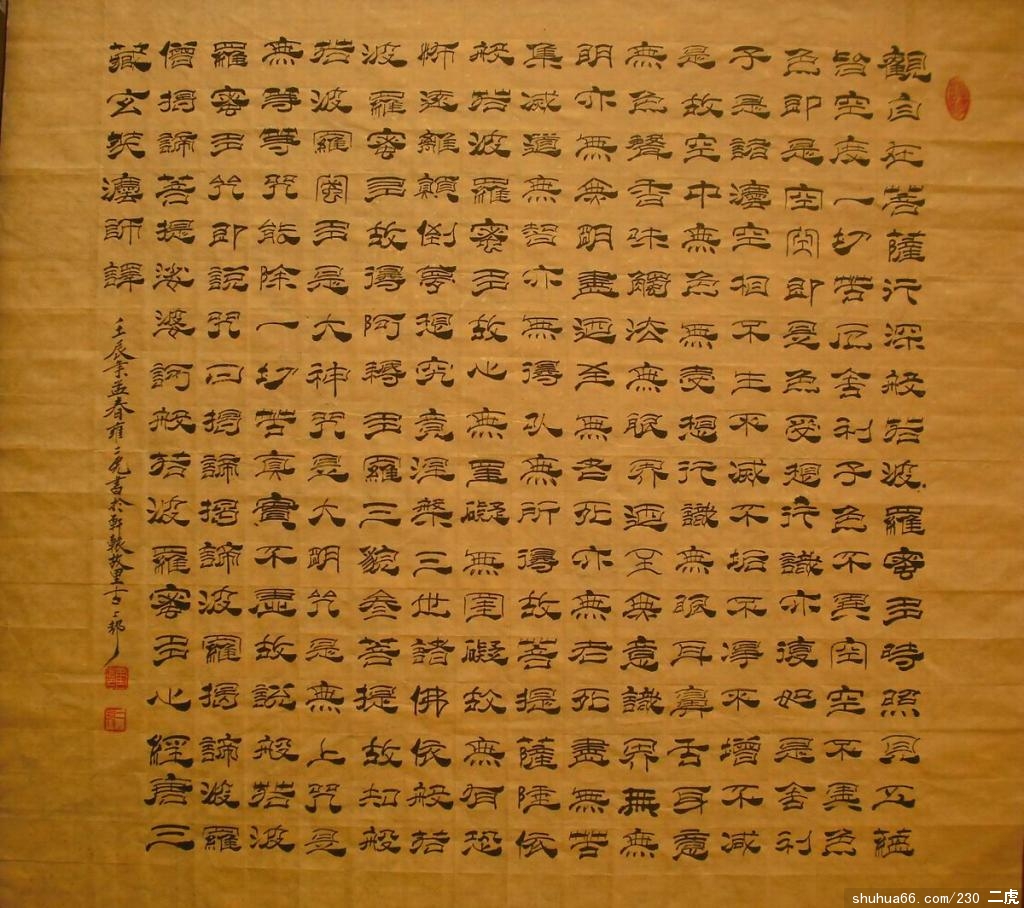 觀自在菩薩行深般若波羅蜜多時照見五蘊
皆空度一切苦厄舍利子色不異空空不異色
色即是空空即是色受想行識亦復如是舍利
子是諸灋空相不生不滅不垢不淨不增不減
是故空中無色無受想行識無眼耳鼻舌身意
無色聲香味觸法無眼界迺至無意識界無無
明亦無無明盡迺至無老死亦無老死盡無苦
集滅道無智亦無得以無所得故菩提薩埵依
般若波羅蜜多故心無罣礙無罣礙故無有恐
怖遠離顛倒夢想究竟涅槃三世諸佛依般若
波羅蜜多故得阿耨多羅三藐叁菩提故知般
若波羅蜜多是大神咒是大明咒是無上咒是
無等等咒能除一切苦真實不虛故說般若波
羅蜜多咒即說咒曰揭諦揭諦波羅揭諦波羅
僧揭諦菩提娑婆訶般若波羅蜜多心經唐三
藏玄奘灋師譯
壬辰年孟春雍二虎書於軒轅故里
shuhua66.com/230 二虎